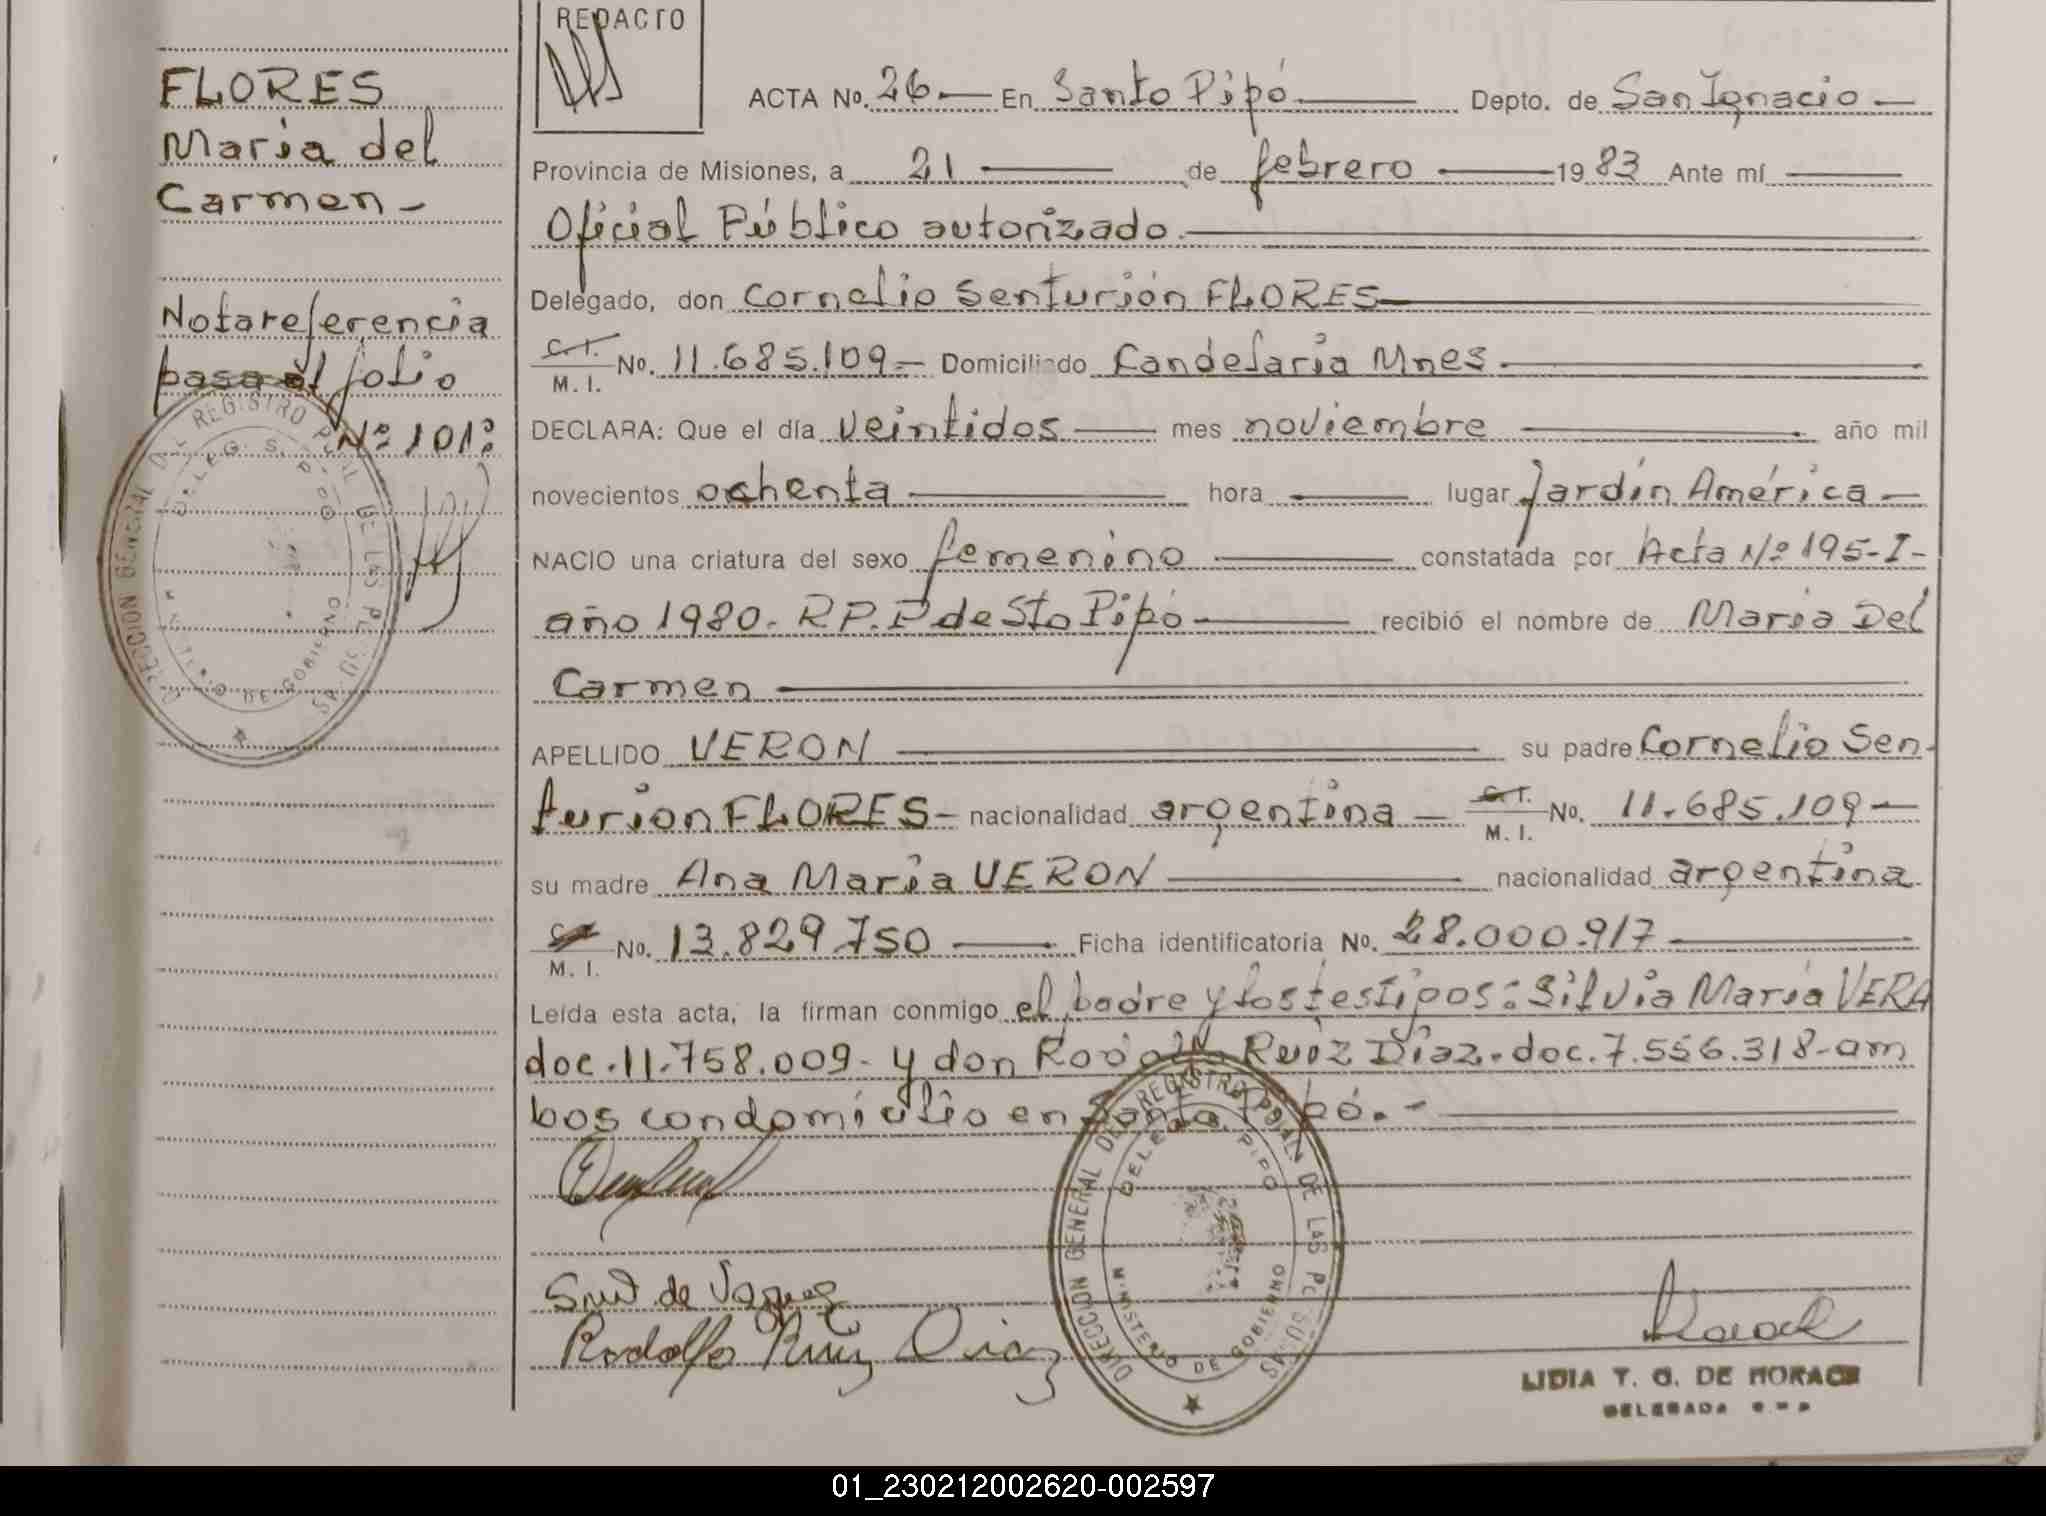 REDACTO
FLORES
Maria del
Carmen -
Nota referencia
pasa al folio
Nº 101:
ACTA No. 26 — En Santo Pipó — Depto. de San Ignacio —
Provincia de Misiones, a 21 — de febrero — 19 83 Ante mí —
Oficial Público autorizado. —
Delegado, don Cornelio Senturión FLORES —
C. I. / M. I. No. 11.685.109 - Domiciliado Candelaria Mnes —
DECLARA: Que el día veintidos — mes noviembre — año mil
novecientos ochenta — hora — lugar Jardín América —
NACIO una criatura del sexo femenino — constatada por Acta Nº 195-I-
año 1980. R.P.P de Sto Pipó — recibió el nombre de Maria Del
Carmen —
APELLIDO VERON — su padre Cornelio Sen-
turion FLORES - nacionalidad argentina — C. I. / M. I. No. 11.685.109 —
su madre Ana Maria VERON — nacionalidad argentina
M. I. No. 13.829.750 — Ficha identificatoria No. 28.000.917 —
Leída esta acta, la firman conmigo el padre y los testigos: Silvia Maria VERA
doc. 11.758.009 - y don Rodolfo Ruiz Diaz. doc. 7.556.318 - am
bos con domicilio en Santo Pipó. - —
Rodolfo Ruiz Diaz
DIRECCION GENERAL DEL REGISTRO PCIAL DE LAS
DELEG. S. PIPO
MINISTERIO DE GOBIERNO
DIRECCION GENERAL DEL REGISTRO PCIAL DE LAS
DELEG. PIPO
MINISTERIO DE GOBIERNO
LIDIA T. G. DE MORACE
DELEGADA
01_230212002620-002597